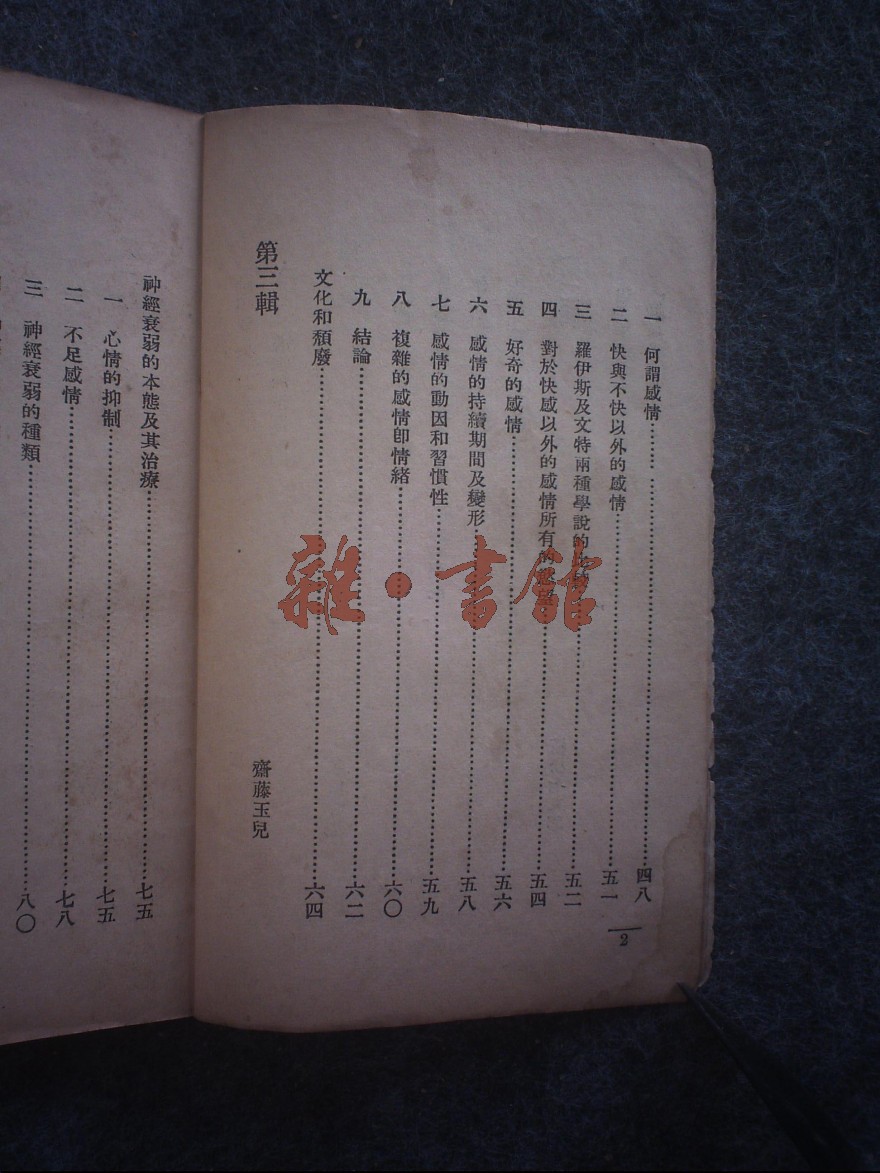 一 何謂感情……………四八
二 快與不快以外的感情……………五一
三 羅伊斯及文特兩種學說的……………五二
四 對於快感以外的感情所有的……………五四
五 好奇的感情……………五六
六 感情的持續期間及變形……………五八
七 感情的動因和習慣性……………五九
八 複雜的感情卽情緒……………六〇
九 結論……………六二
文化和頹廢……………六四
第三輯 齋藤玉兒
2
神經衰弱的本態及其治療……………七五
一 心情的抑制……………七五
二 不足感情……………七八
三 神經衰弱的種類……………八〇
雜·書館